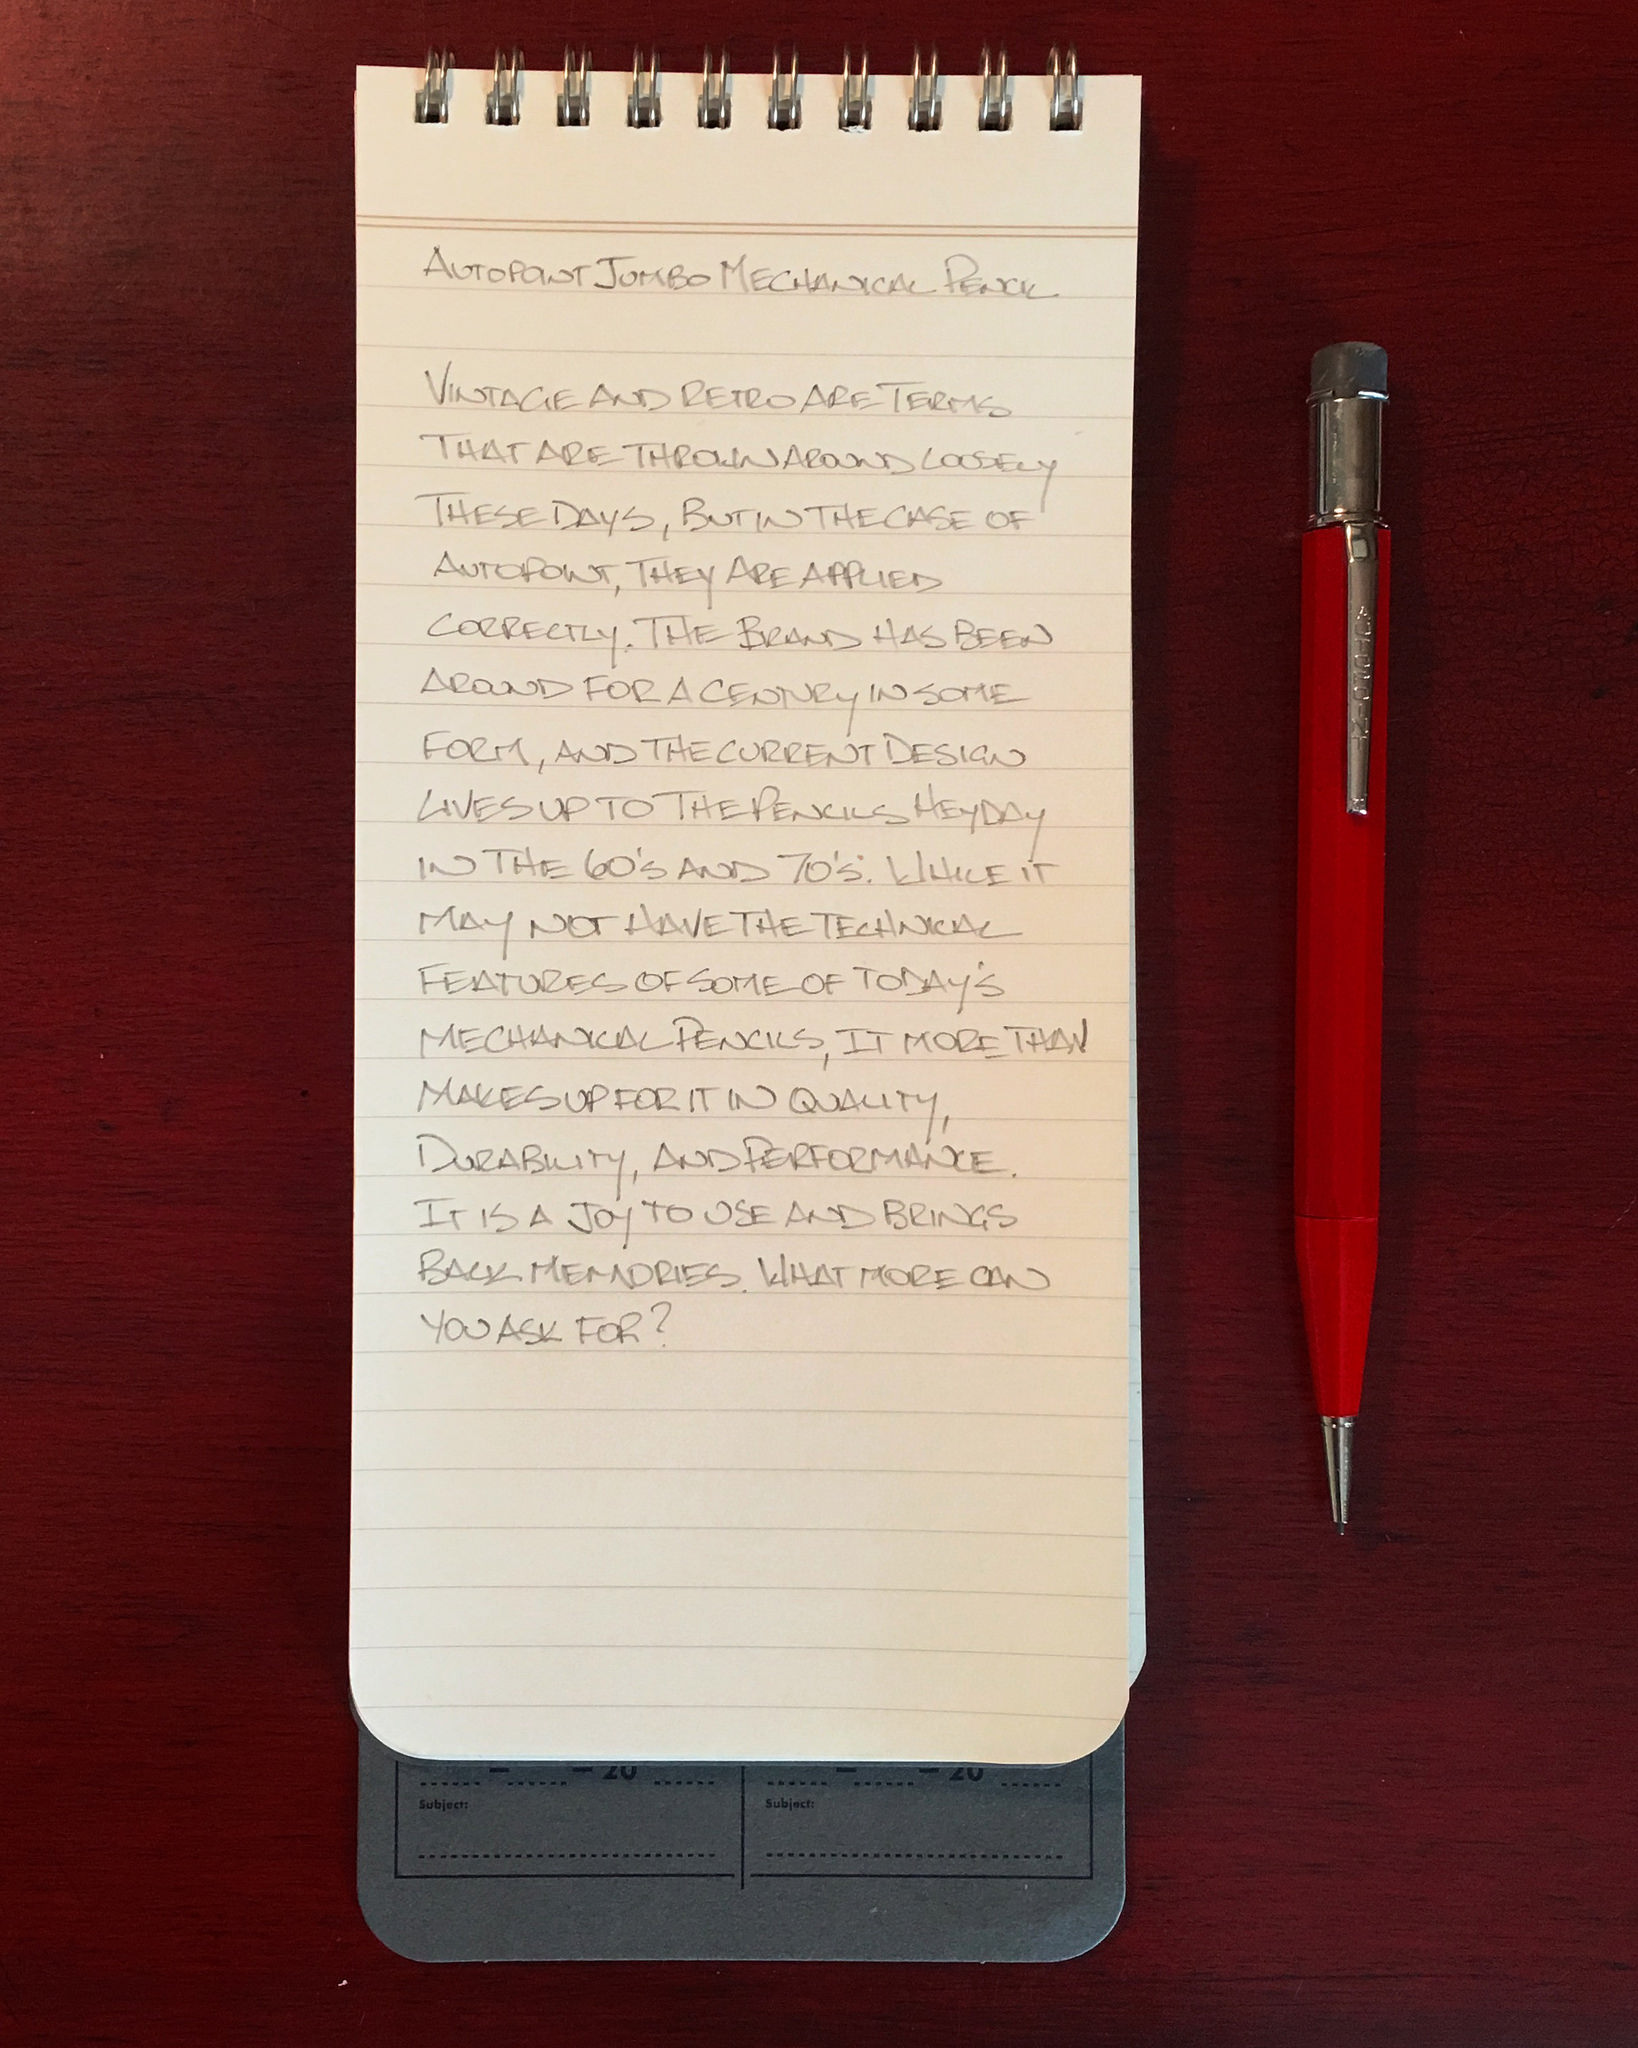 AUTOPOINT JUMBO MECHANICAL PENCIL
VINTAGE AND RETRO ARE TERMS
THAT ARE THROWN AROUND LOOSELY
THESE DAYS, BUT IN THE CASE OF
AUTOPOINT, THEY ARE APPLIED
CORRECTLY. THE BRAND HAS BEEN
AROUND FOR A CENTURY IN SOME
FORM, AND THE CURRENT DESIGN
LIVES UP TO THE PENCILS HEYDAY
IN THE 60'S AND 70'S. WHILE IT
MAY NOT HAVE THE TECHNICAL
FEATURES OF SOME OF TODAY'S
MECHANICAL PENCILS, IT MORE THAN
MAKES UP FOR IT IN QUALITY,
DURABILITY, AND PERFORMANCE.
IT IS A JOY TO USE AND BRINGS
BACK MEMORIES. WHAT MORE CAN
YOU ASK FOR?
AUTOPOINT
– – 20 – – 20
Subject: Subject: